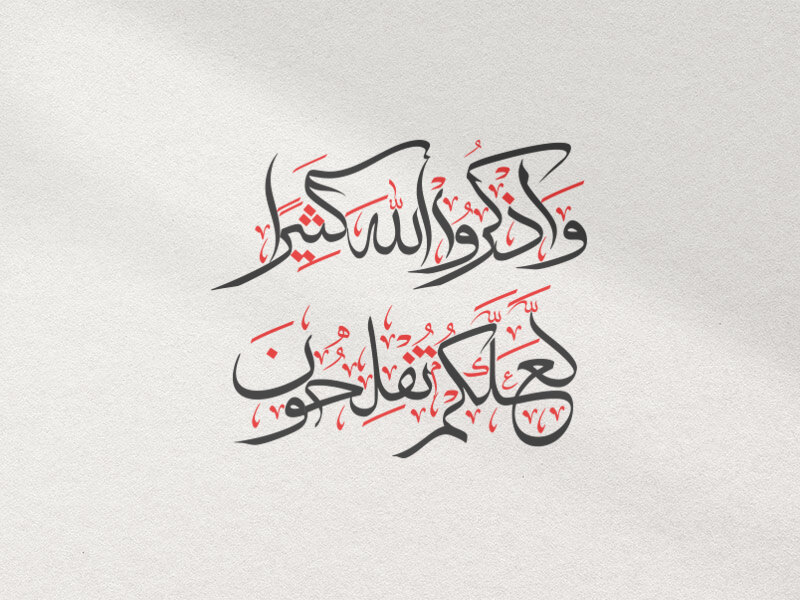 وَاذْكُرُوا اللَّهَ كَثِيرًا
لَّعَلَّكُمْ تُفْلِحُونَ